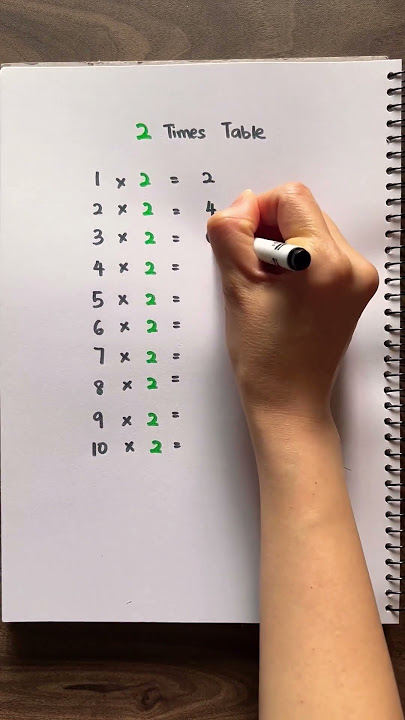 2 Times Table
1 × 2 = 2
2 × 2 = 4
3 × 2 =
4 × 2 =
5 × 2 =
6 × 2 =
7 × 2 =
8 × 2 =
9 × 2 =
10 × 2 =